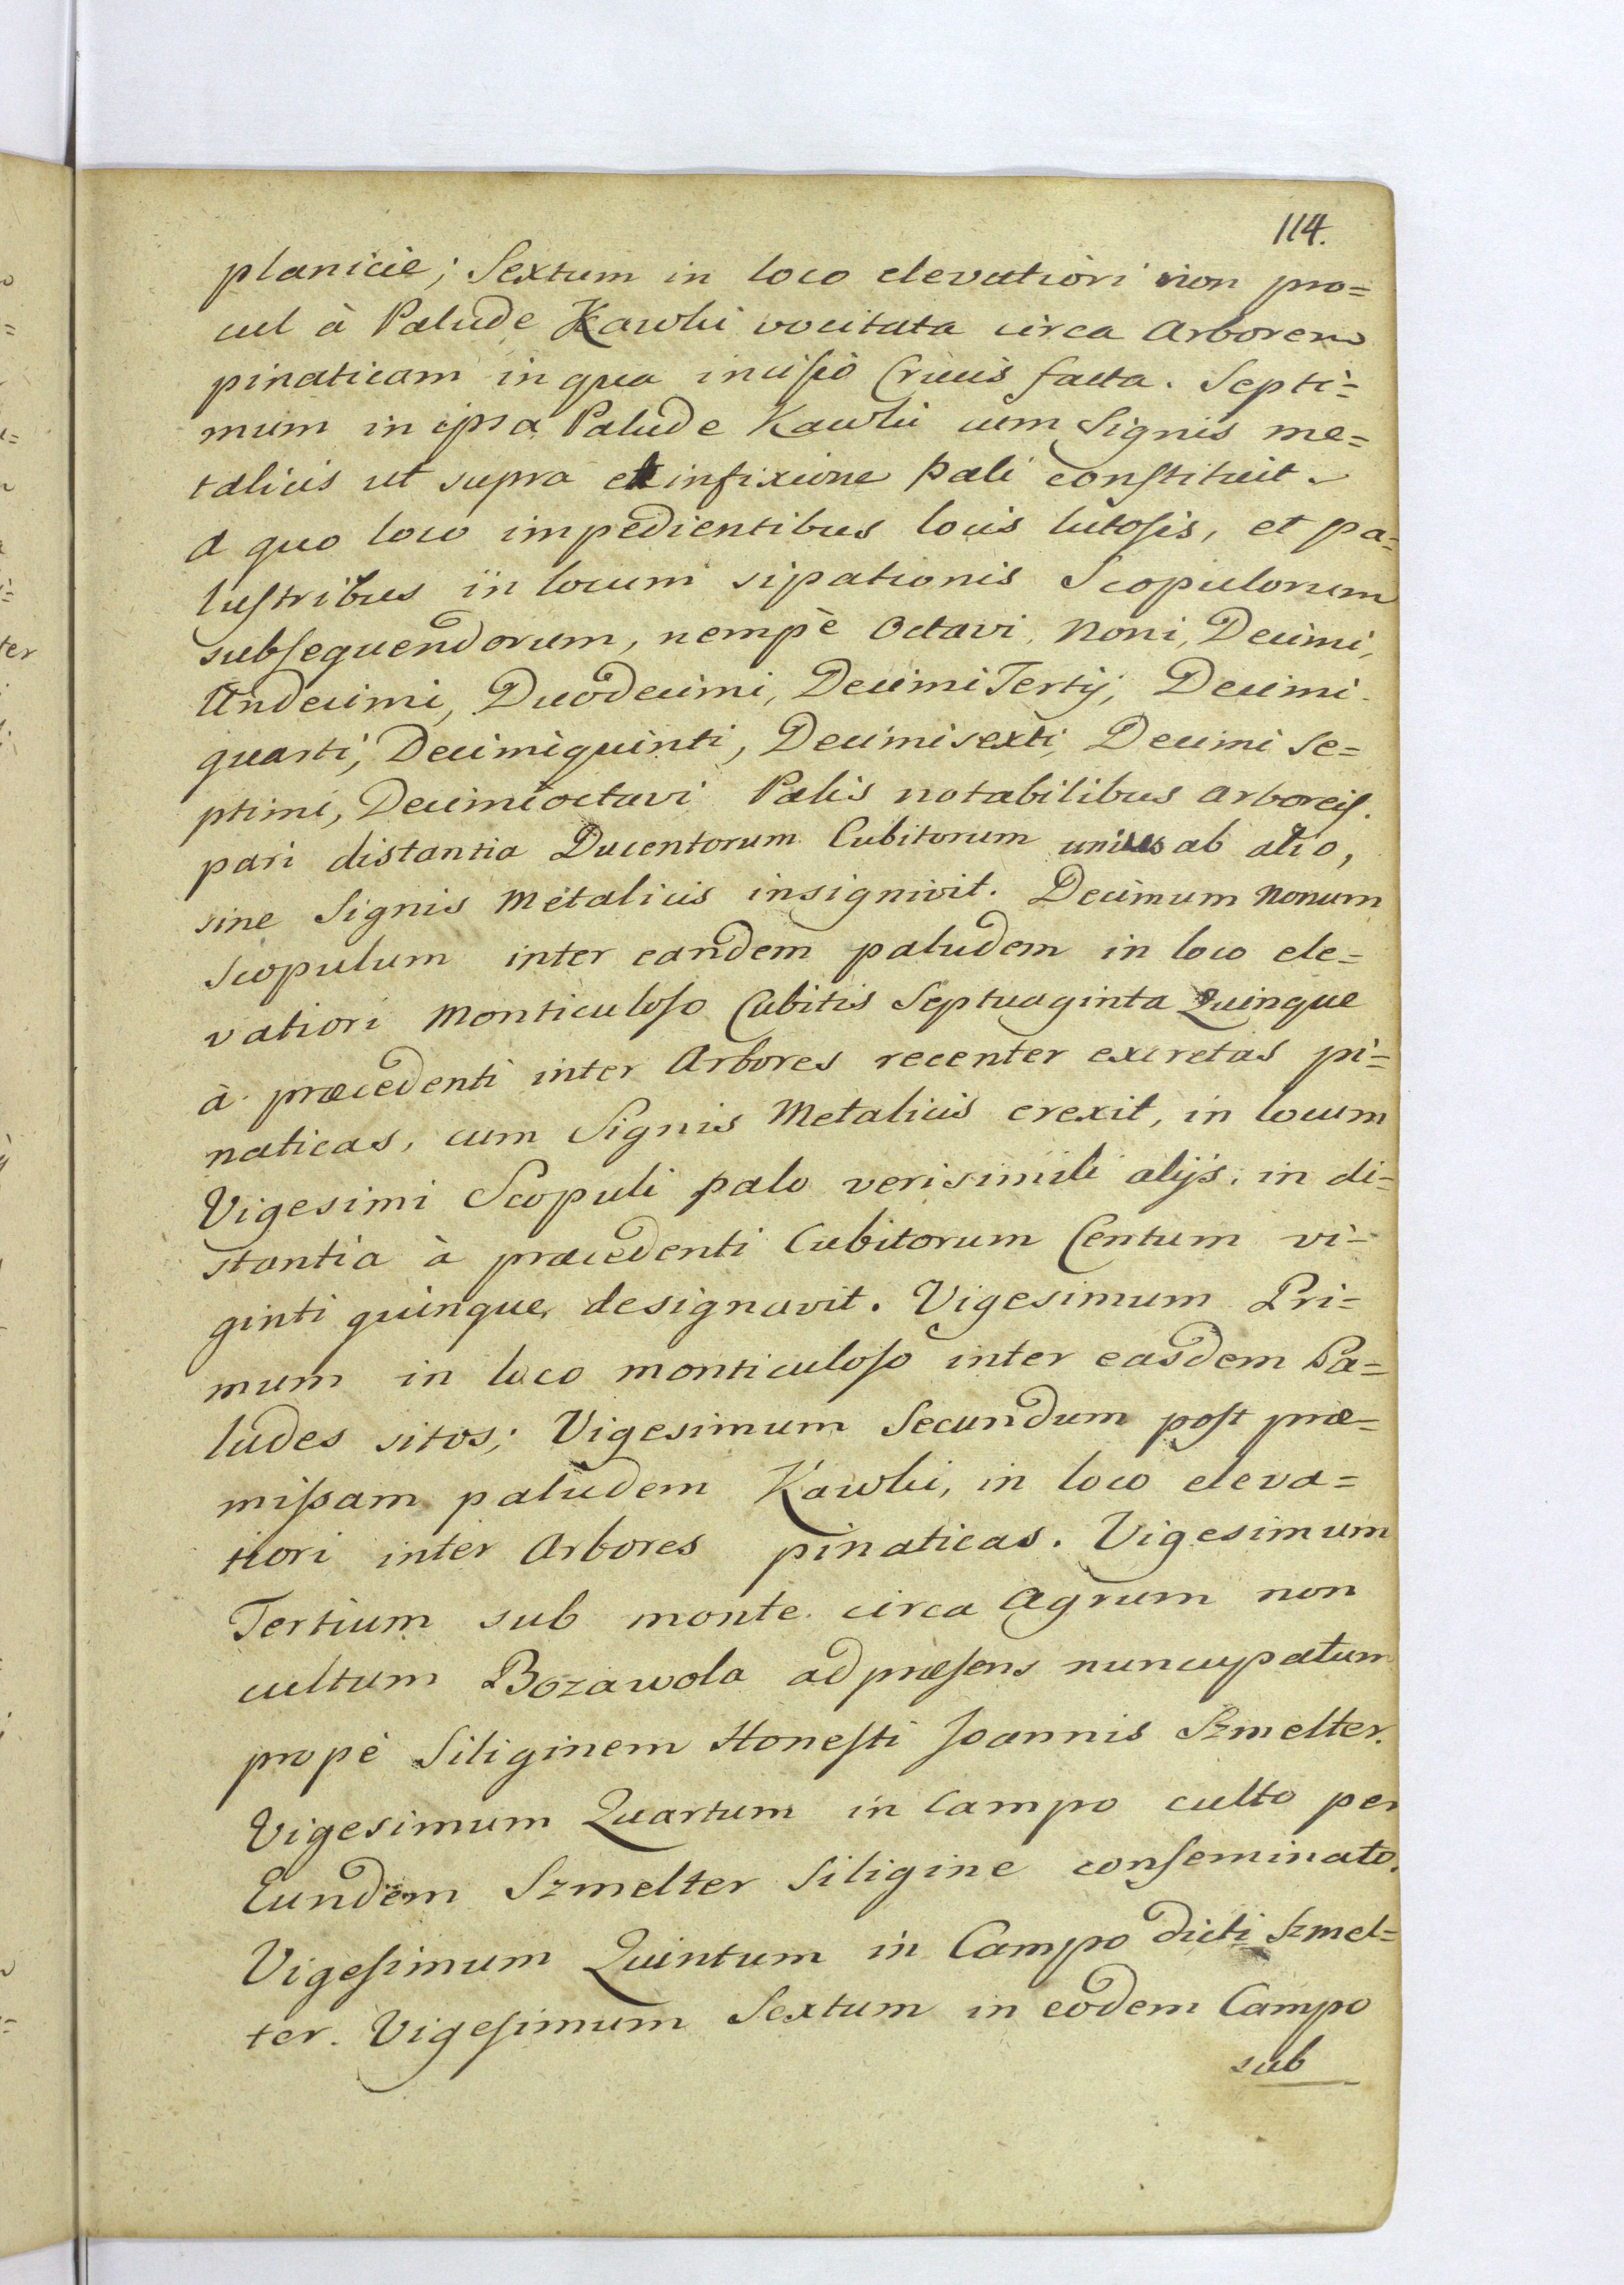 114.
planicie; Sextum in loco elevatiori non pro=
cul à Palude Kawlii vocitata circa Arborem
pinaticam in qua incisio Crucis facta. Septi=
mum in ipsa Palude Kawlii cum Signis me=
talicis ut supra et infixione Pali constituit.
A quo loco impedientibus locis lutosis, et pa=
lustribus in locum sipationis Scopulorum
subsequendorum, nempè Octavi, Noni, Decimi,
Undecimi, Duodecimi, Decimi Tertij, Decimi
quarti, Decimiquinti, Decimisexti, Decimi Se=
ptimi, Decimioctavi Palis notabilibus arboreis.
pari distantia Ducentorum Cubitorum unius ab alio,
sine Signis Metalicis insignivit. Decimum Nonum
Scopulum inter eandem paludem in loco ele=
vatiori Monticuloso Cubitis Septuaginta Quinque
à præcedenti inter Arbores recenter excretas pi=
naticas, cum Signis Metalicis erexit, in locum
Vigesimi Scopuli palo verisimili alijs, in di=
stantia à præcedenti Cubitorum Centum vi=
ginti quinque, designavit. Vigesimum Pri=
mum in loco monticuloso inter easdem Pa=
ludes sitos; Vigesimum Secundum post præ=
missam paludem Kawlii, in loco eleva=
tiori inter Arbores pinaticas. Vigesimum
Tertium sub monte circa Agrum non
cultum Bozawola ad præsens nuncupatum
propè Siliginem Honesti Joannis Szmelter.
Vigesimum Quartum in Campo culto per
Eundem Szmelter Siligine conseminato.
Vigesimum Quintum in Campo dicti Szmel=
ter. Vigesimum Sextum in eodem Campo
sub